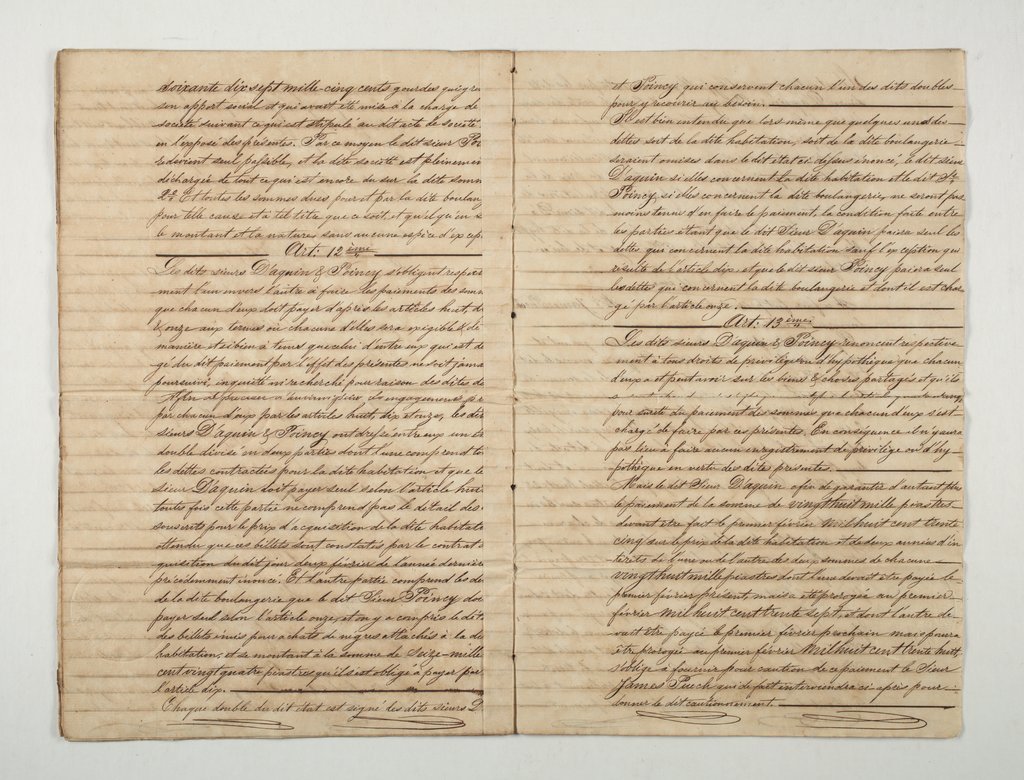 soixante dix sept mille cinq cents gourdes qui gre
son apport social et qui avait été mise à la charge de
societé suivant ce qui est stipulé au dit acte de societé
en l'exposé des présentes. Par ce moyen le dit sieur Poi
redevient seul passible, et la dite societé est pleinemen
dechargée de tout ce qui est encore du sur la dite somm
2º Et toutes les sommes dues pour et par la dite boulan
pour telle cause et à tel titre que ce soit, et qu'il qu'en s
le montant et la nature sans aucune espice d'excep
Art: 12 ème
Les dits sieurs D'aquin & Poincy s'obligent respec
ment l'un envers l'autre à faire les paiements des som
que chacun d'eux doit payer d'après les articles huit, d
& onze aux termes où chacune d'elles sera exigible & de
manière et si bien à tems que celui d'entre eux qui est d
gé du dit paiement par l'effet des présentes ne soit jama
poursuivi, inquiété ni recherché pour raison des dites de
engagements pr
par chacun d'eux par les articles huit, dix et onze, les di
sieurs D'aquin & Poincy ont dressé entre eux un et
double divisé en deux parties dont l'une comprend to
les dettes contractées pour la dite habitation et que le
sieur D'aquin doit payer seul selon l'article huit
toutes fois cette partie ne comprend pas le détail des
souscrits pour le prix d'acquisition de la dite habitati
attendu que ces billets sont constatés par le contrat
quisition du dit jour deux février de l'année dernière
précédemment énoncé. Et l'autre partie comprend les de
de la dite boulangerie que le dit Sieur Poincy doi
payer seul selon l'article onze, et on y a compris le dét
des billets émis pour achats de nègres attachés à la di
habitation, et se montant à la somme de Seize mille
cent vingt quatre piastres qu'il s'est obligé à payer par
l'article dix.
Chaque double du dit état est signé des dits sieurs D
et Poincy qui conservent chacun l'un des dits doubles
pour y recourir au besoin.
Il est bien entendu que lors même que quelques unes des
dettes soit de la dite habitation, soit de la dite boulangerie
seraient omises dans le dit état ci dessus énoncé, le dit sieur
D'aquin si elles concernent la dite habitation et le dit Sr
Poincy, si elles concernent la dite boulangerie, ne seront pas
moins tenus d'en faire le paiement, la condition faite entre
les parties étant que le dit Sieur D'aquin paiera seul les
dettes qui concernent la dite habitation sauf l'exception qui
résulte de l'article dix, et que le dit sieur Poincy paiera seul
les dettes qui concernent la dite boulangerie et dont il est char
gé par l'article onze.
Art: 13 ème
Les dits sieurs D'aquin & Poincy renoncent respective
ment à tous droits de privilège ou d'hypothèque que chacun
d'eux a et peut avoir sur les biens & choses partagés et qu'ils
pour sureté du paiement des sommes que chacun d'eux s'est
chargé de faire par ces présentes. En conséquence il n'y aura
pas lieu à faire aucun enregistrement de privilège ou d'hy
pothèque en vertu des dites présentes.
Mais le dit Sieur D'aquin afin de garantir d'autant plus
le paiement de la somme de vingt huit mille piastres
devant être fait le premier février mil huit cent trente
cinq sur le prix de la dite habitation et de deux années d'in
térêts de l'une ou de l'autre des deux sommes de chacune
vingt huit mille piastres dont l'une devait être payée le
premier février présent mais a été prorogée au premier
février mil huit cent trente sept, et dont l'autre de
vait être payée le premier février prochain mais pourra
être prorogée au premier février mil huit cent trente huit
s'oblige à fournir pour caution de ce paiement le Sieur
James Puech qui de fait interviendra ci après pour
donner le dit cautionnement.